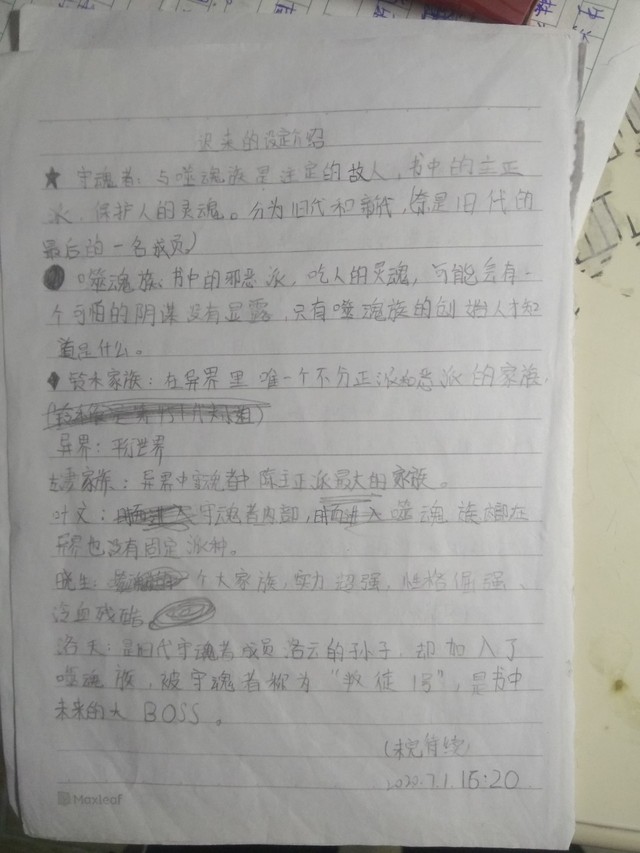 迟来的设定介绍
★ 守魂者：与噬魂族是注定的故人，书中的主正
派，保护人的灵魂。（分为旧代和新代，你是旧代的
最后的一名成员）
噬魂族：书中的邪恶派，吃人的灵魂，可能会有一
个可怕的阴谋没有显露，只有噬魂族的创始人才知
道是什么。
铃木家族：在异界里唯一个不分正派和恶派的家族
异界：平世界
家族：异界中守魂者中除主正派最大的家族。
叶文：守魂者内部，时而进入噬魂族内部在
异界也没有固定派种。
晓生：个大家族，实力超强，性格倔强、
冷血残酷
洛天：是旧代守魂者成员洛云的孙子，却加入了
噬魂族，被守魂者称为“叛徒1号”，是书中
未来的大BOSS。
（未完待续）
2020.7.1.15:20
Maxleaf